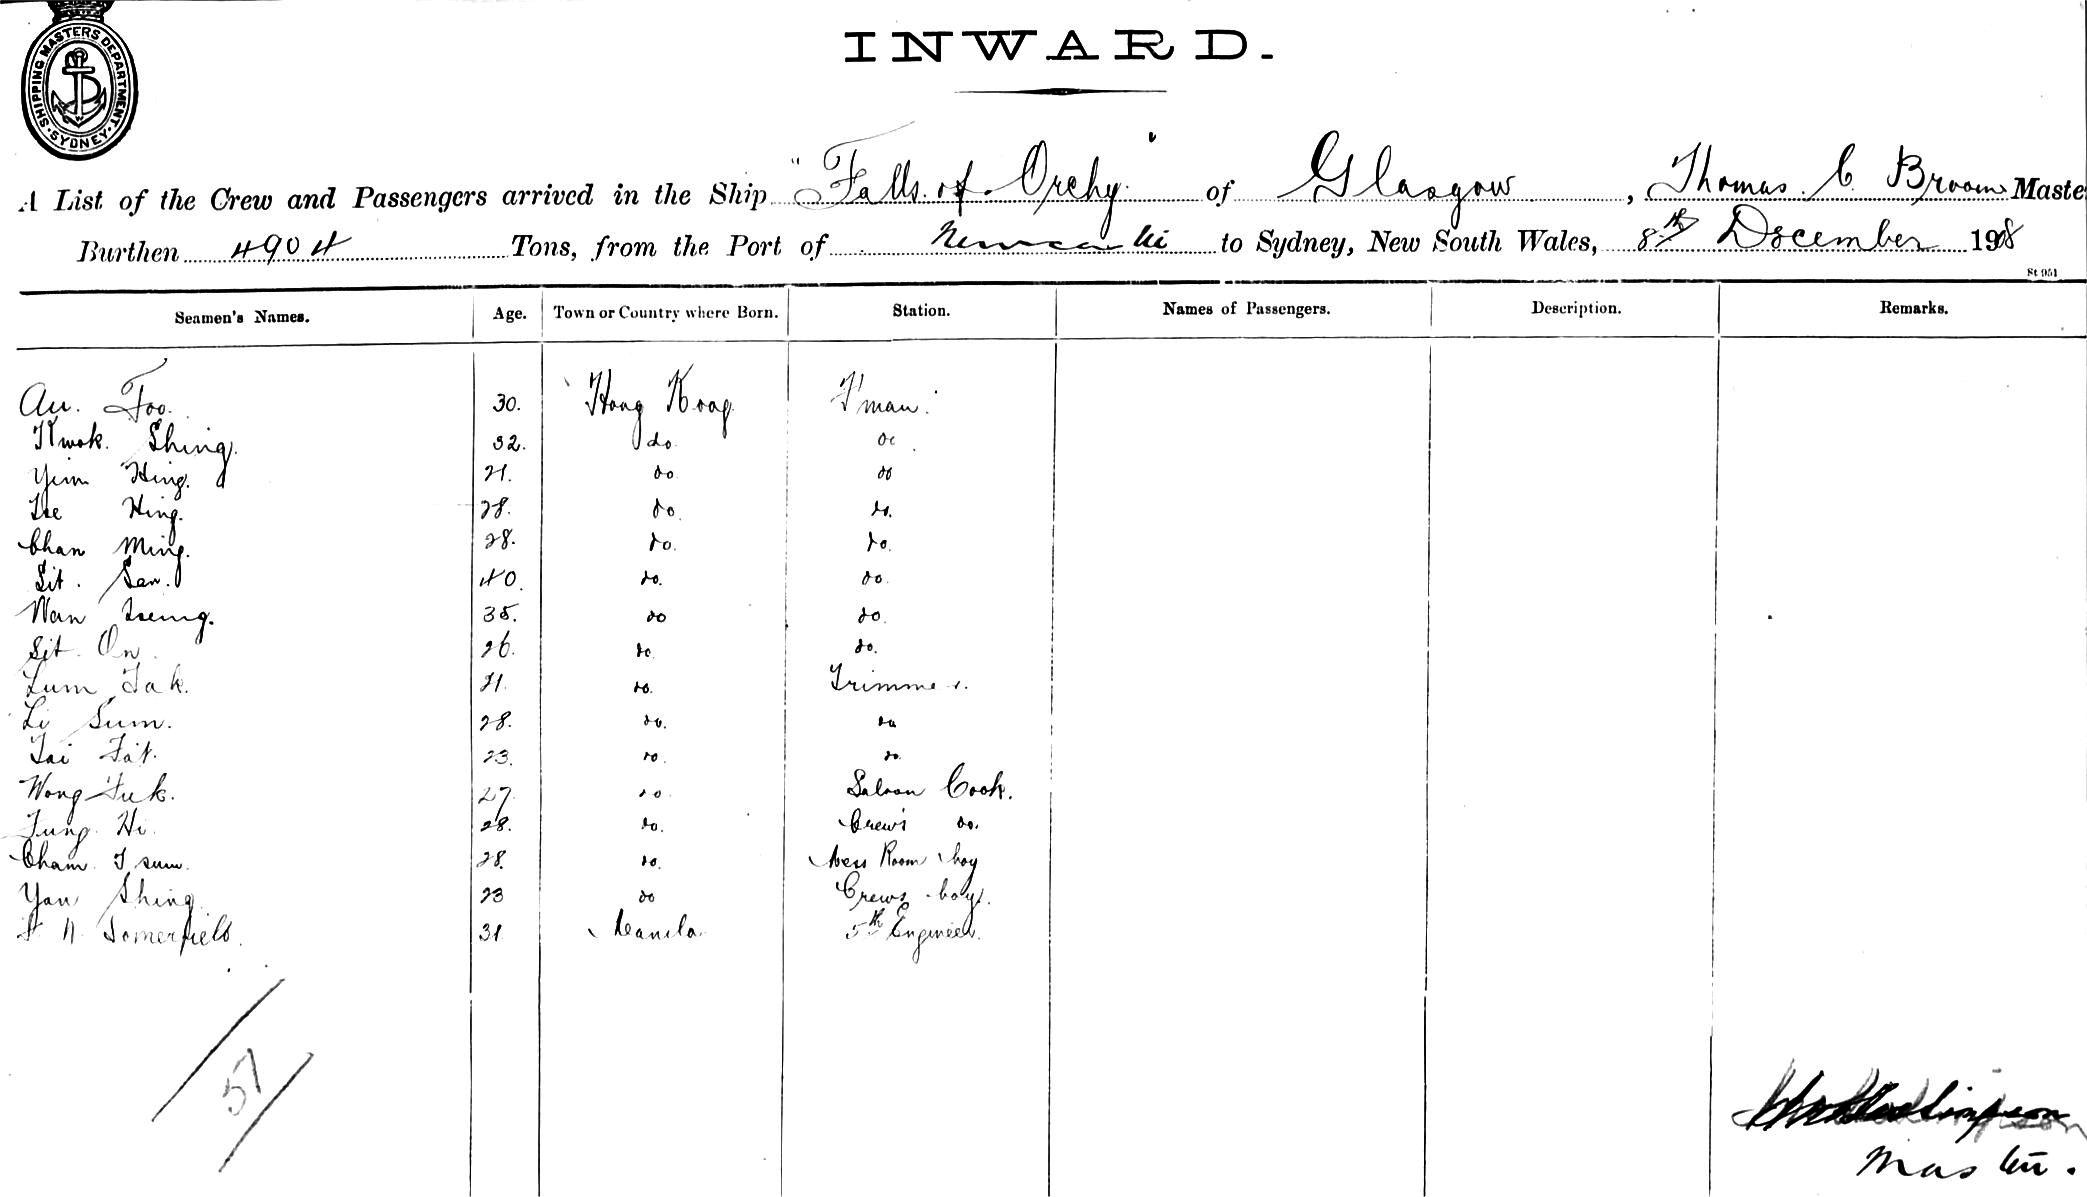 SHIPPING MASTERS DEPARTMENT · SYDNEY ·
INWARD.
A List of the Crew and Passengers arrived in the Ship "Falls of Orchy" of Glasgow, Thomas C Broom Maste
Burthen 4904 Tons, from the Port of to Sydney, New South Wales, 8th December 1908
St 951
Seamen's Names. Age. Town or Country where Born. Station. Names of Passengers. Description. Remarks.
Au. Foo. 30. Hong Kong F'man.
Kwok Shing. 32. do. do
Yim Hing. 21. do do
Tse Hing. 28. do. do.
Chan Ming. 28. do. do.
Sit. San. 40. do. do.
Wan Tseung. 35. do do.
Sit On. 26. do. do.
Lum Tak. 21. do. Trimmer.
Li Sum. 28. do. do
Tai Fat. 23. do. do.
Wong Fuk. 27. do. Saloon Cook.
Tung Hi. 28. do. Crew's do.
Cham Tsum. 28. do. Mess Room boy
Yau Shing 23 do Crews boys.
Somerfield. 31 Manila. 5th Engineer.
57
Simpson
Master.